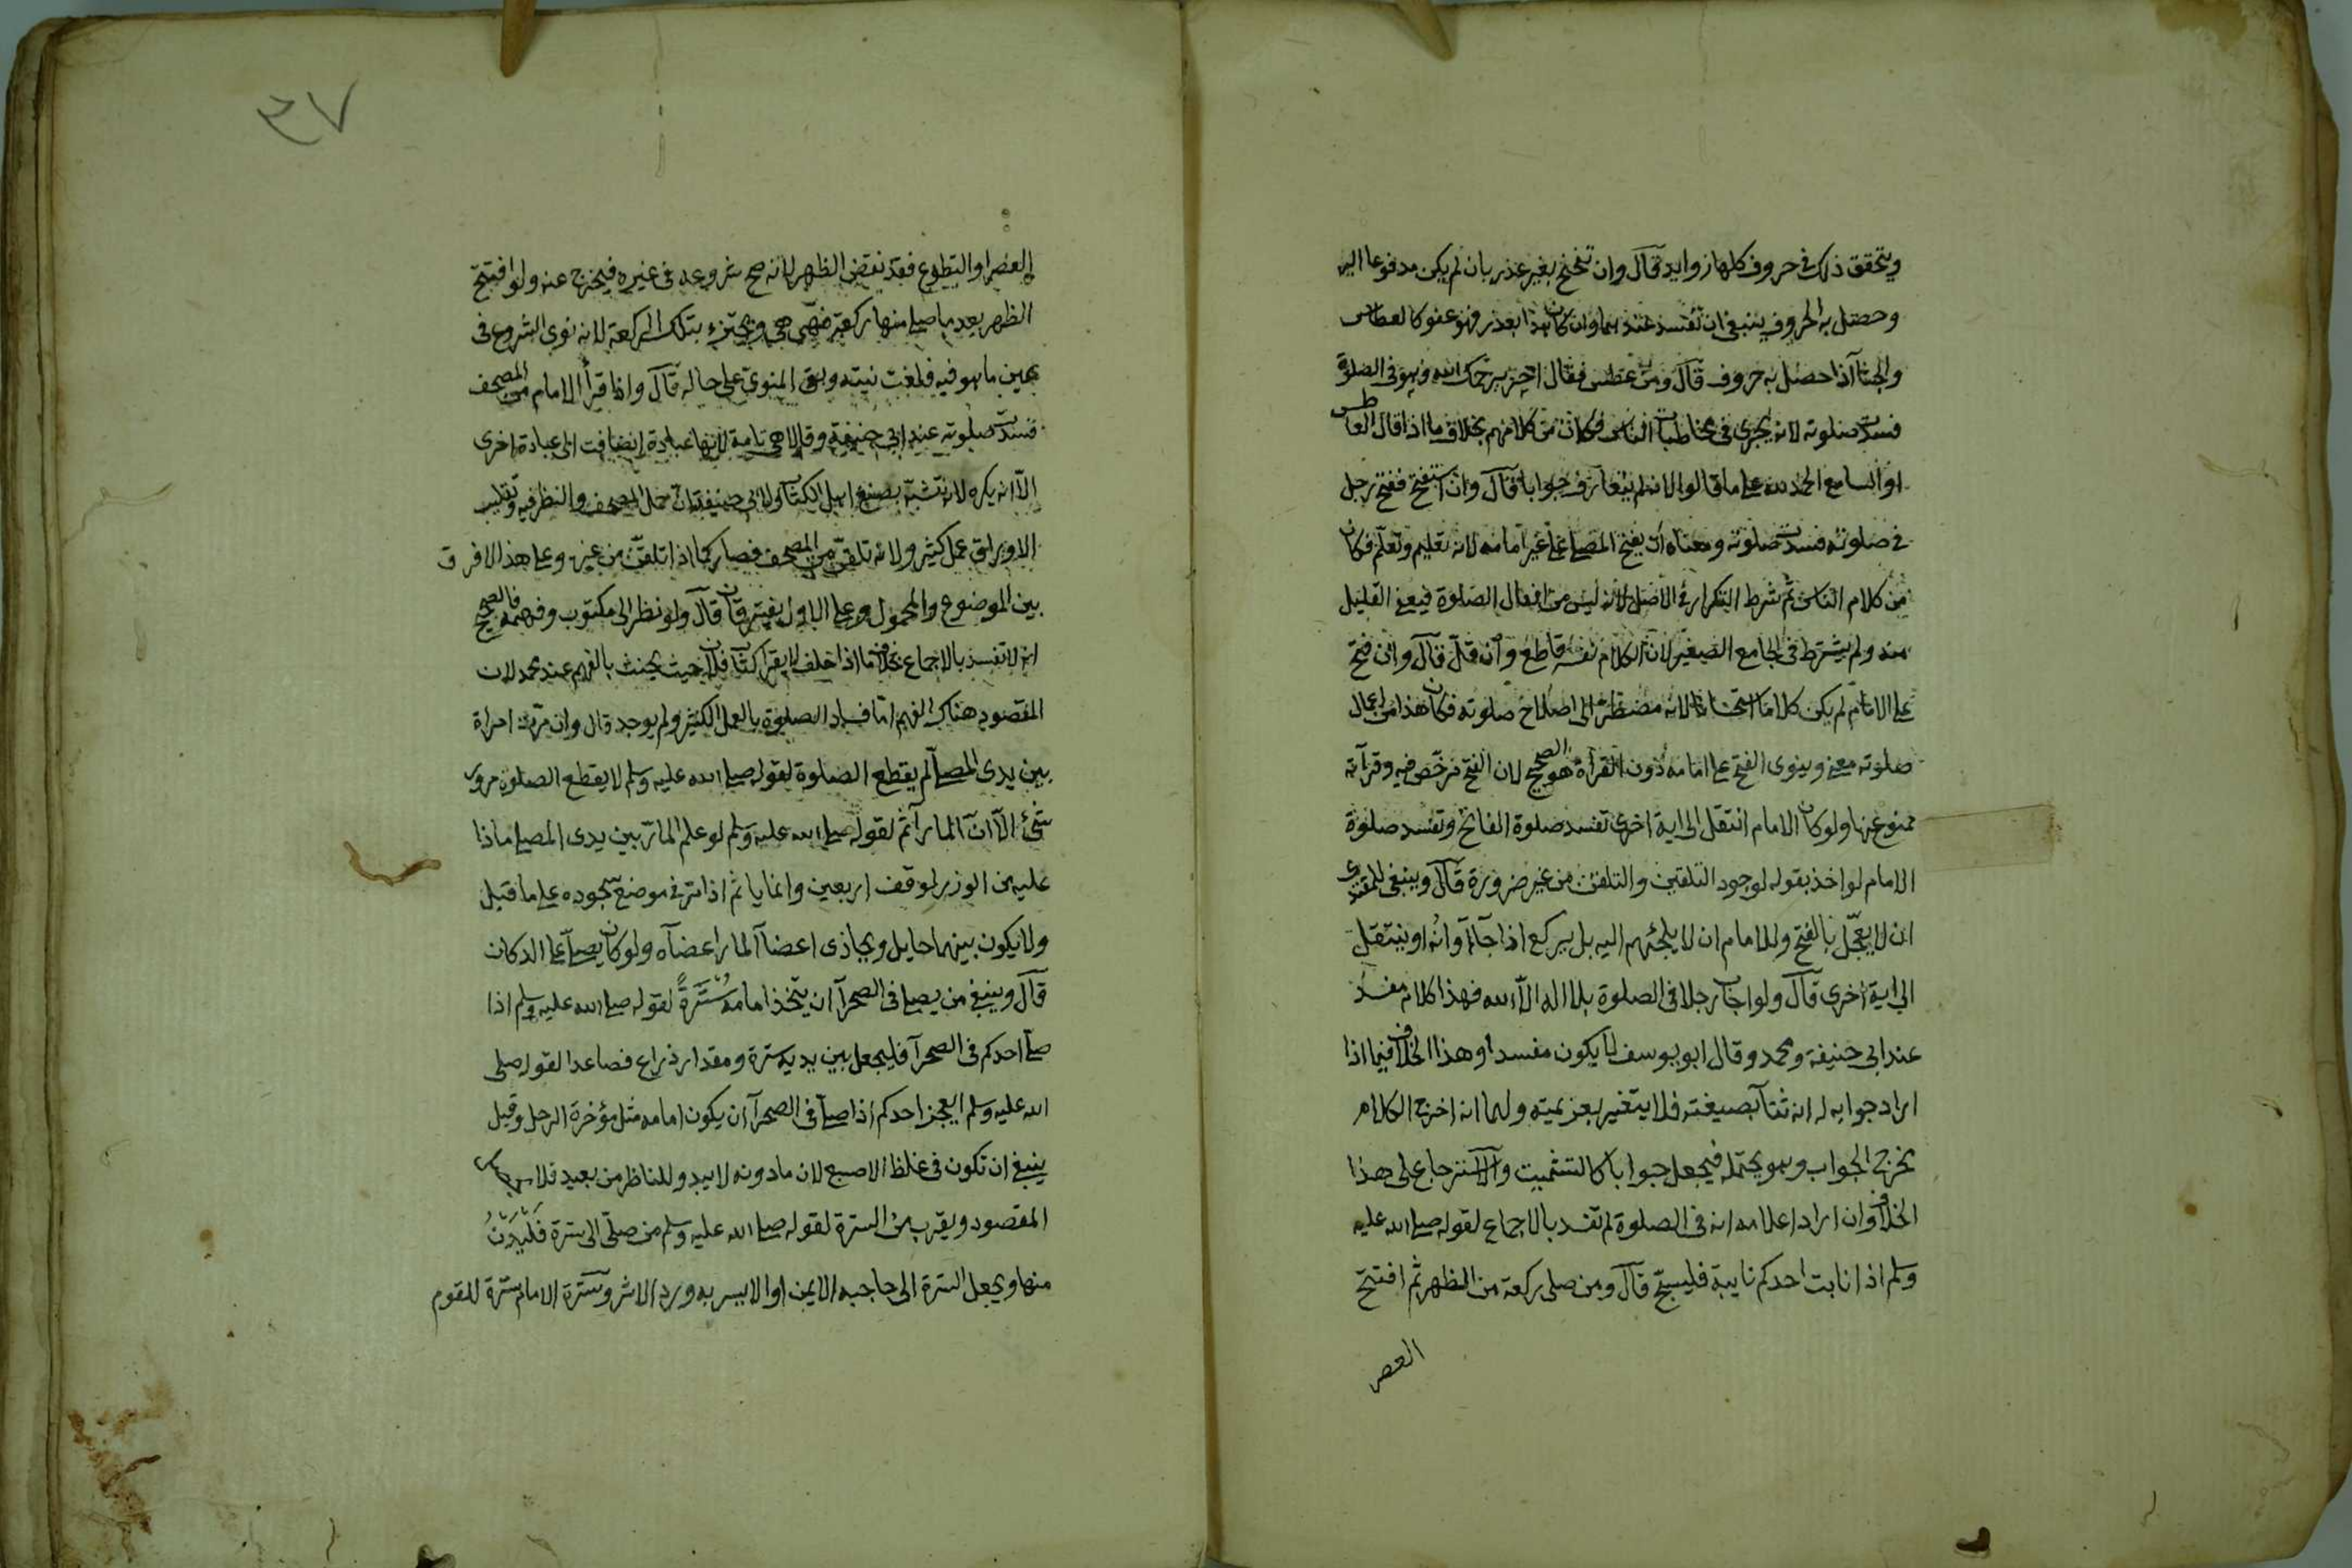 ويتحقق ذلك في حروف كلها زوايد قال وان تنحنح بغير عذر بان لم يكن مدفوعا اليه
وحصل به الحروف ينبغي ان تفسد عندهما وان كان بعذر فهو عفو كالعطاس
والجشآ اذا حصل به حروف قال ومن عطس فقال اخر يرحمك الله وهو في الصلوة
فسدت صلوته لانه يجري في مخاطبات الناس فكان من كلامهم بخلاف ما اذا قال العاطس
او السامع الحمد لله على ما قالوا لانه لم يتعارف جوابا قال وان استفتح ففتح رجل
في صلوته فسدت صلوته ومعناه ان يفتح المصلي على غير امامه لانه تعليم وتعلم فكان
من كلام الناس ثم شرط التكرار في الاصل لانه ليس من افعال الصلوة فيعفى القليل
منه ولم يشترط في الجامع الصغير لان الكلام نفسه قاطع وان قل قال وان فتح
على الامام لم يكن كلاما استحسانا لانه مضطر الى اصلاح صلوته فكان هذا من اعمال
صلوته معنى وينوي الفتح على امامه دون القرآة هو الصحيح لان الفتح مرخص فيه وقرآته
ممنوع عنها ولو كان الامام انتقل الى اية اخرى تفسد صلوة الفاتح وتفسد صلوة
الامام لو اخذ بقوله لوجود التلقين والتلقن من غير ضرورة قال وينبغي للمقتدي
ان لا يعجل بالفتح وللامام ان لا يلجئهم اليه بل يركع اذا جآ اوانه او ينتقل
الى اية اخرى قال ولو اجاب رجلا في الصلوة بلا اله الا الله فهذا كلام مفسد
عند ابي حنيفة ومحمد وقال ابو يوسف لا يكون مفسدا وهذا الخلاف فيما اذا
اراد جوابه له انه ثنآ بصيغته فلا يتغير بعزيمته ولهما انه اخرج الكلام
مخرج الجواب وهو يحتمله فيجعل جوابا كالتشميت والاسترجاع على هذا
الخلاف وان اراد اعلامه انه في الصلوة لم تفسد بالاجماع لقوله صلى الله عليه
وسلم اذا نابت احدكم نايبة فليسبح قال ومن صلى ركعة من الظهر ثم افتتح
العصر
٣٧
العصر او التطوع فقد نقض الظهر لانه صح شروعه في غيره فيخرج عنه ولو افتتح
الظهر بعد ما صلى منها ركعة فهي هي ويجتزء بتلك الركعة لانه نوى الشروع في
عين ما هو فيه فلغت نيته وبقي المنوي على حاله قال واذا قرأ الامام من المصحف
فسدت صلوته عند ابي حنيفة وقالا هي تامة لانها عبادة انضافت الى عبادة اخرى
الا انه يكره لانه تشبه بصنيع اهل الكتاب ولابي حنيفة ان حمل المصحف والنظر فيه وتقليب
الاوراق عمل كثير ولانه تلقن من المصحف فصار كما اذا تلقن من غيره وعلى هذا لا فرق
بين الموضوع والمحمول وعلى الاول يفترقان قال ولو نظر الى مكتوب وفهمه فالصحيح
انه لا تفسد بالاجماع بخلاف ما اذا حلف لا يقرأ كتاب فلان حيث يحنث بالفهم عند محمد لان
المقصود هناك الفهم اما فساد الصلوة بالعمل الكثير ولم يوجد قال وان مرت امراة
بين يدي المصلي لم يقطع الصلوة لقوله صلى الله عليه وسلم لا يقطع الصلوة مرور
شئ الا ان المار آثم لقوله صلى الله عليه وسلم لو علم المار بين يدي المصلي ماذا
عليه من الوزر لوقف اربعين وانما ياثم اذا مر في موضع سجوده على ما قيل
ولا يكون بينهما حايل ويحاذي اعضآ المار اعضآه ولو كان يصلي على الدكان
قال وينبغي من يصلي في الصحرآ ان يتخذ امامه سترة لقوله صلى الله عليه وسلم اذا
صلى احدكم في الصحرآ فليجعل بين يديه سترة ومقدار ذراع فصاعدا لقوله صلى
الله عليه وسلم ايعجز احدكم اذا صلى في الصحرآ ان يكون امامه مثل مؤخرة الرحل وقيل
ينبغي ان تكون في غلظ الاصبع لان ما دونه لا يبدو للناظر من بعيد فلا
المقصود ويقرب من السترة لقوله صلى الله عليه وسلم من صلى الى سترة فليدن
منها ويجعل السترة الى حاجبه الايمن او الايسر به ورد الاثر وسترة الامام سترة للقوم